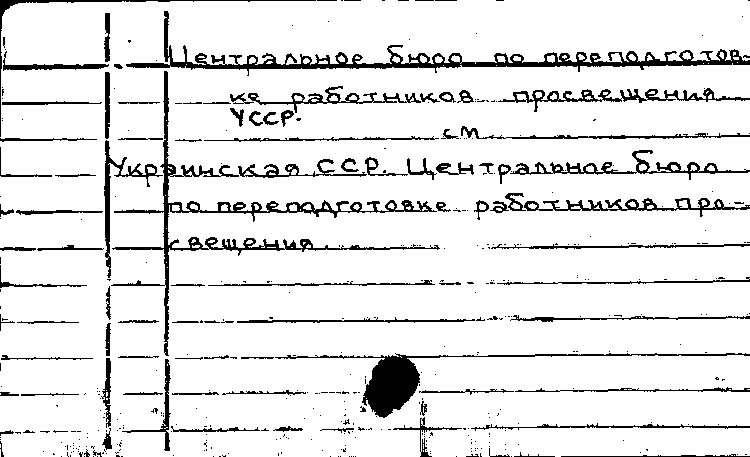 Центральное бюро по переподготов-
ке работников просвещения
УССР.
см
Украинская ССР. Центральное бюро
по переподготовке работников про-
свещения.